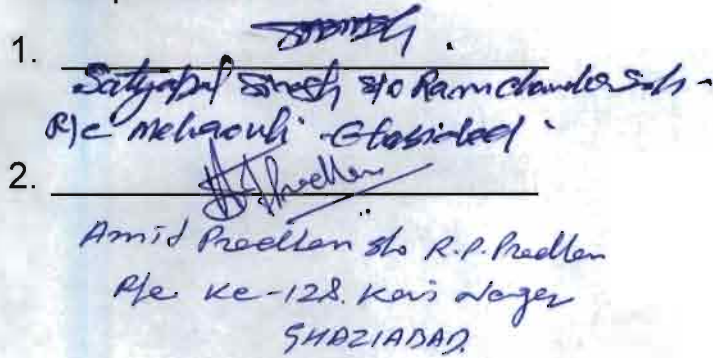 1.
Satyapal Singh s/o Ramchander Singh
R/o Mehrauli - Ghaziabad
2.
Amit Pradhan s/o R.P. Pradhan
R/o KC-128. Kavi Nagar
GHAZIABAD.